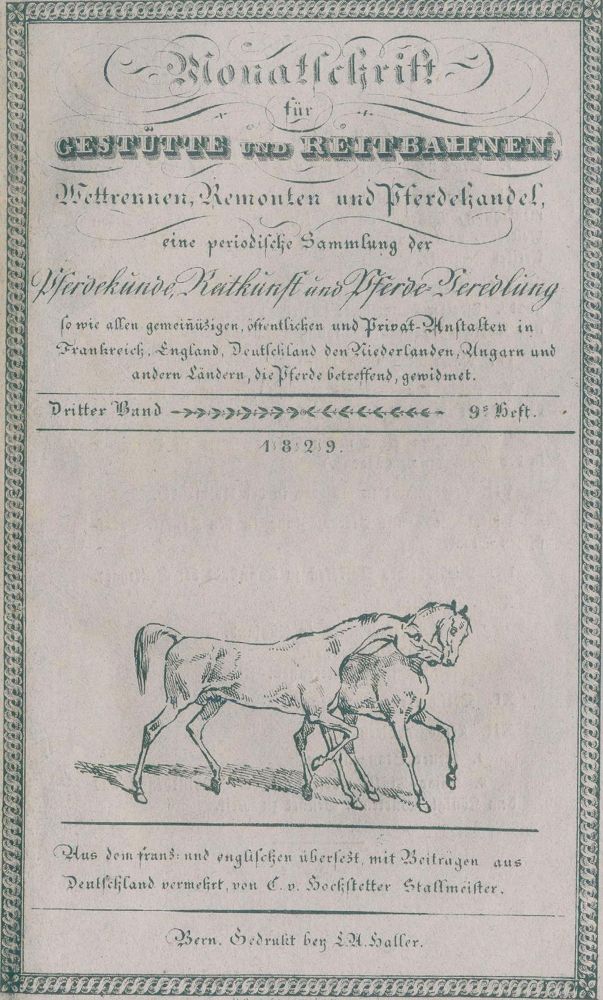 Monatschrift
für
GESTÜTTE UND REITBAHNEN,
Wettrennen, Remonten und Pferdehandel,
eine periodische Sammlung der
Pferdekunde, Reitkunst und Pferde-Veredlung
so wie allen gemeinüzigen, öffentlichen und Privat-Anstalten in
Frankreich, England, Deutschland den Niederlanden, Ungarn und
andern Ländern, die Pferde betreffend, gewidmet.
Dritter Band 9s Heft.
1829.
Aus dem franz: und englischen übersezt, mit Beiträgen aus
Deutschland vermehrt, von C. v. Hochstetter Stallmeister.
Bern. Gedrukt bey L. A. Haller.